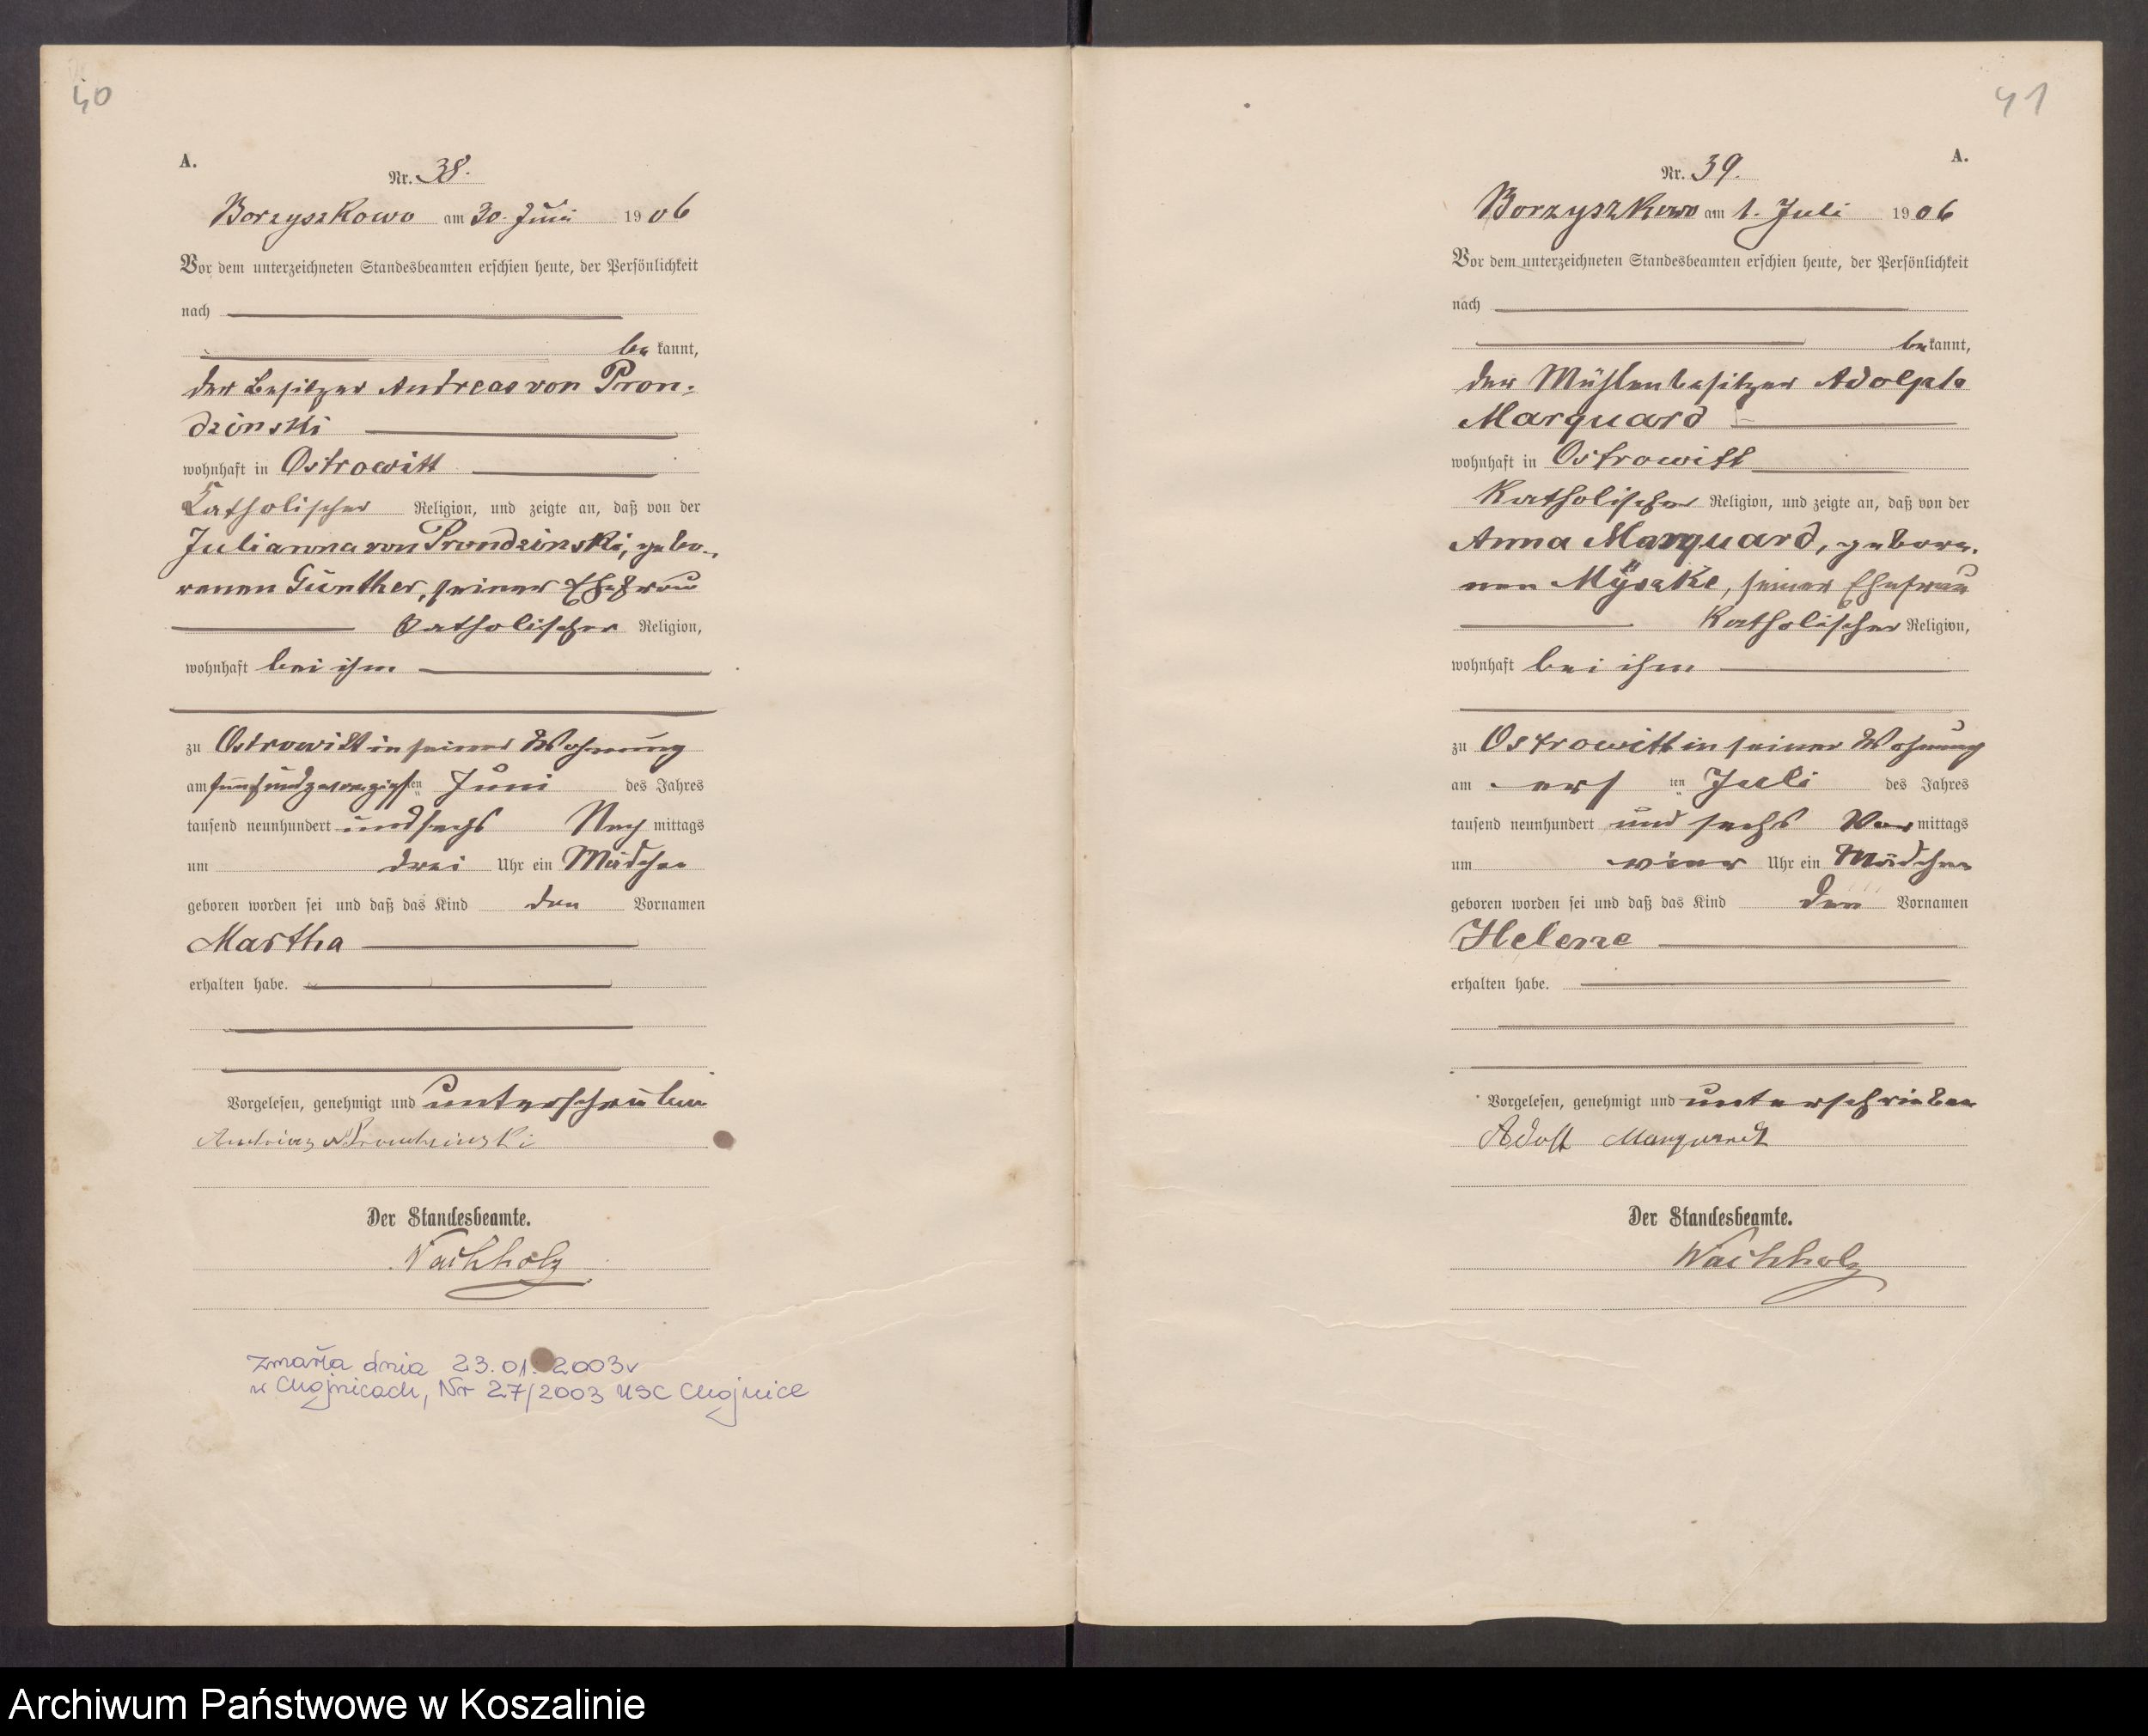 40
A.
Nr. 38.
Borzyszkowo am 30. Juni 1906
Vor dem unterzeichneten Standesbeamten erschien heute, der Persönlichkeit
nach
be kannt,
der Besitzer Andreas von Pron-
dzinski
wohnhaft in Ostrowitt
Katholischer Religion, und zeigte an, daß von der
Julianna von Prondzinski, gebo-
renen Günther, seiner Ehefrau
Katholischer Religion,
wohnhaft bei ihm
zu Ostrowitt in seiner Wohnung
am fünfundzwanzigsten Juni des Jahres
tausend neunhundert und sechs Nach mittags
um drei Uhr ein Mädchen
geboren worden sei und daß das Kind den Vornamen
Martha
erhalten habe.
Vorgelesen, genehmigt und unterschrieben
Andreas v Prondzinski
Der Standesbeamte.
Wachholz
zmarła dnia 23.01.2003r
w Chojnicach, Nr 27/2003 USC Chojnice
41
A.
Nr. 39.
Borzyszkowo am 1. Juli 1906
Vor dem unterzeichneten Standesbeamten erschien heute, der Persönlichkeit
nach
be kannt,
der Mühlenbesitzer Adolph
Marquard
wohnhaft in Ostrowitt
Katholischer Religion, und zeigte an, daß von der
Anna Marquard, gebore-
nen Mÿszke, seiner Ehefrau
Katholischer Religion,
wohnhaft bei ihm
zu Ostrowitt in seiner Wohnung
am ersten Juli des Jahres
tausend neunhundert und sechs Vor mittags
um vier Uhr ein Mädchen
geboren worden sei und daß das Kind den Vornamen
Helene
erhalten habe.
Vorgelesen, genehmigt und unterschrieben
Adolf Marquardt
Der Standesbeamte.
Wachholz
Archiwum Państwowe w Koszalinie